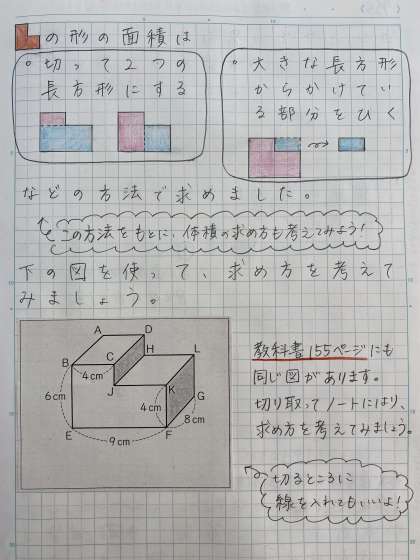 の形の面積は
○ 切って2つの
長方形にする
○ 大きな長方形
からかけてい
る部分をひく
などの方法で求めました。
この方法をもとに、体積の求め方も考えてみよう!
下の図を使って、求め方を考えて
みましょう。
A D
H L
B C
4cm
J K
6cm 4cm G
8cm
E F
9cm
教科書155ページにも
同じ図があります。
切り取ってノートにはり、
求め方を考えてみましょう。
切るところに
線を入れてもいいよ!